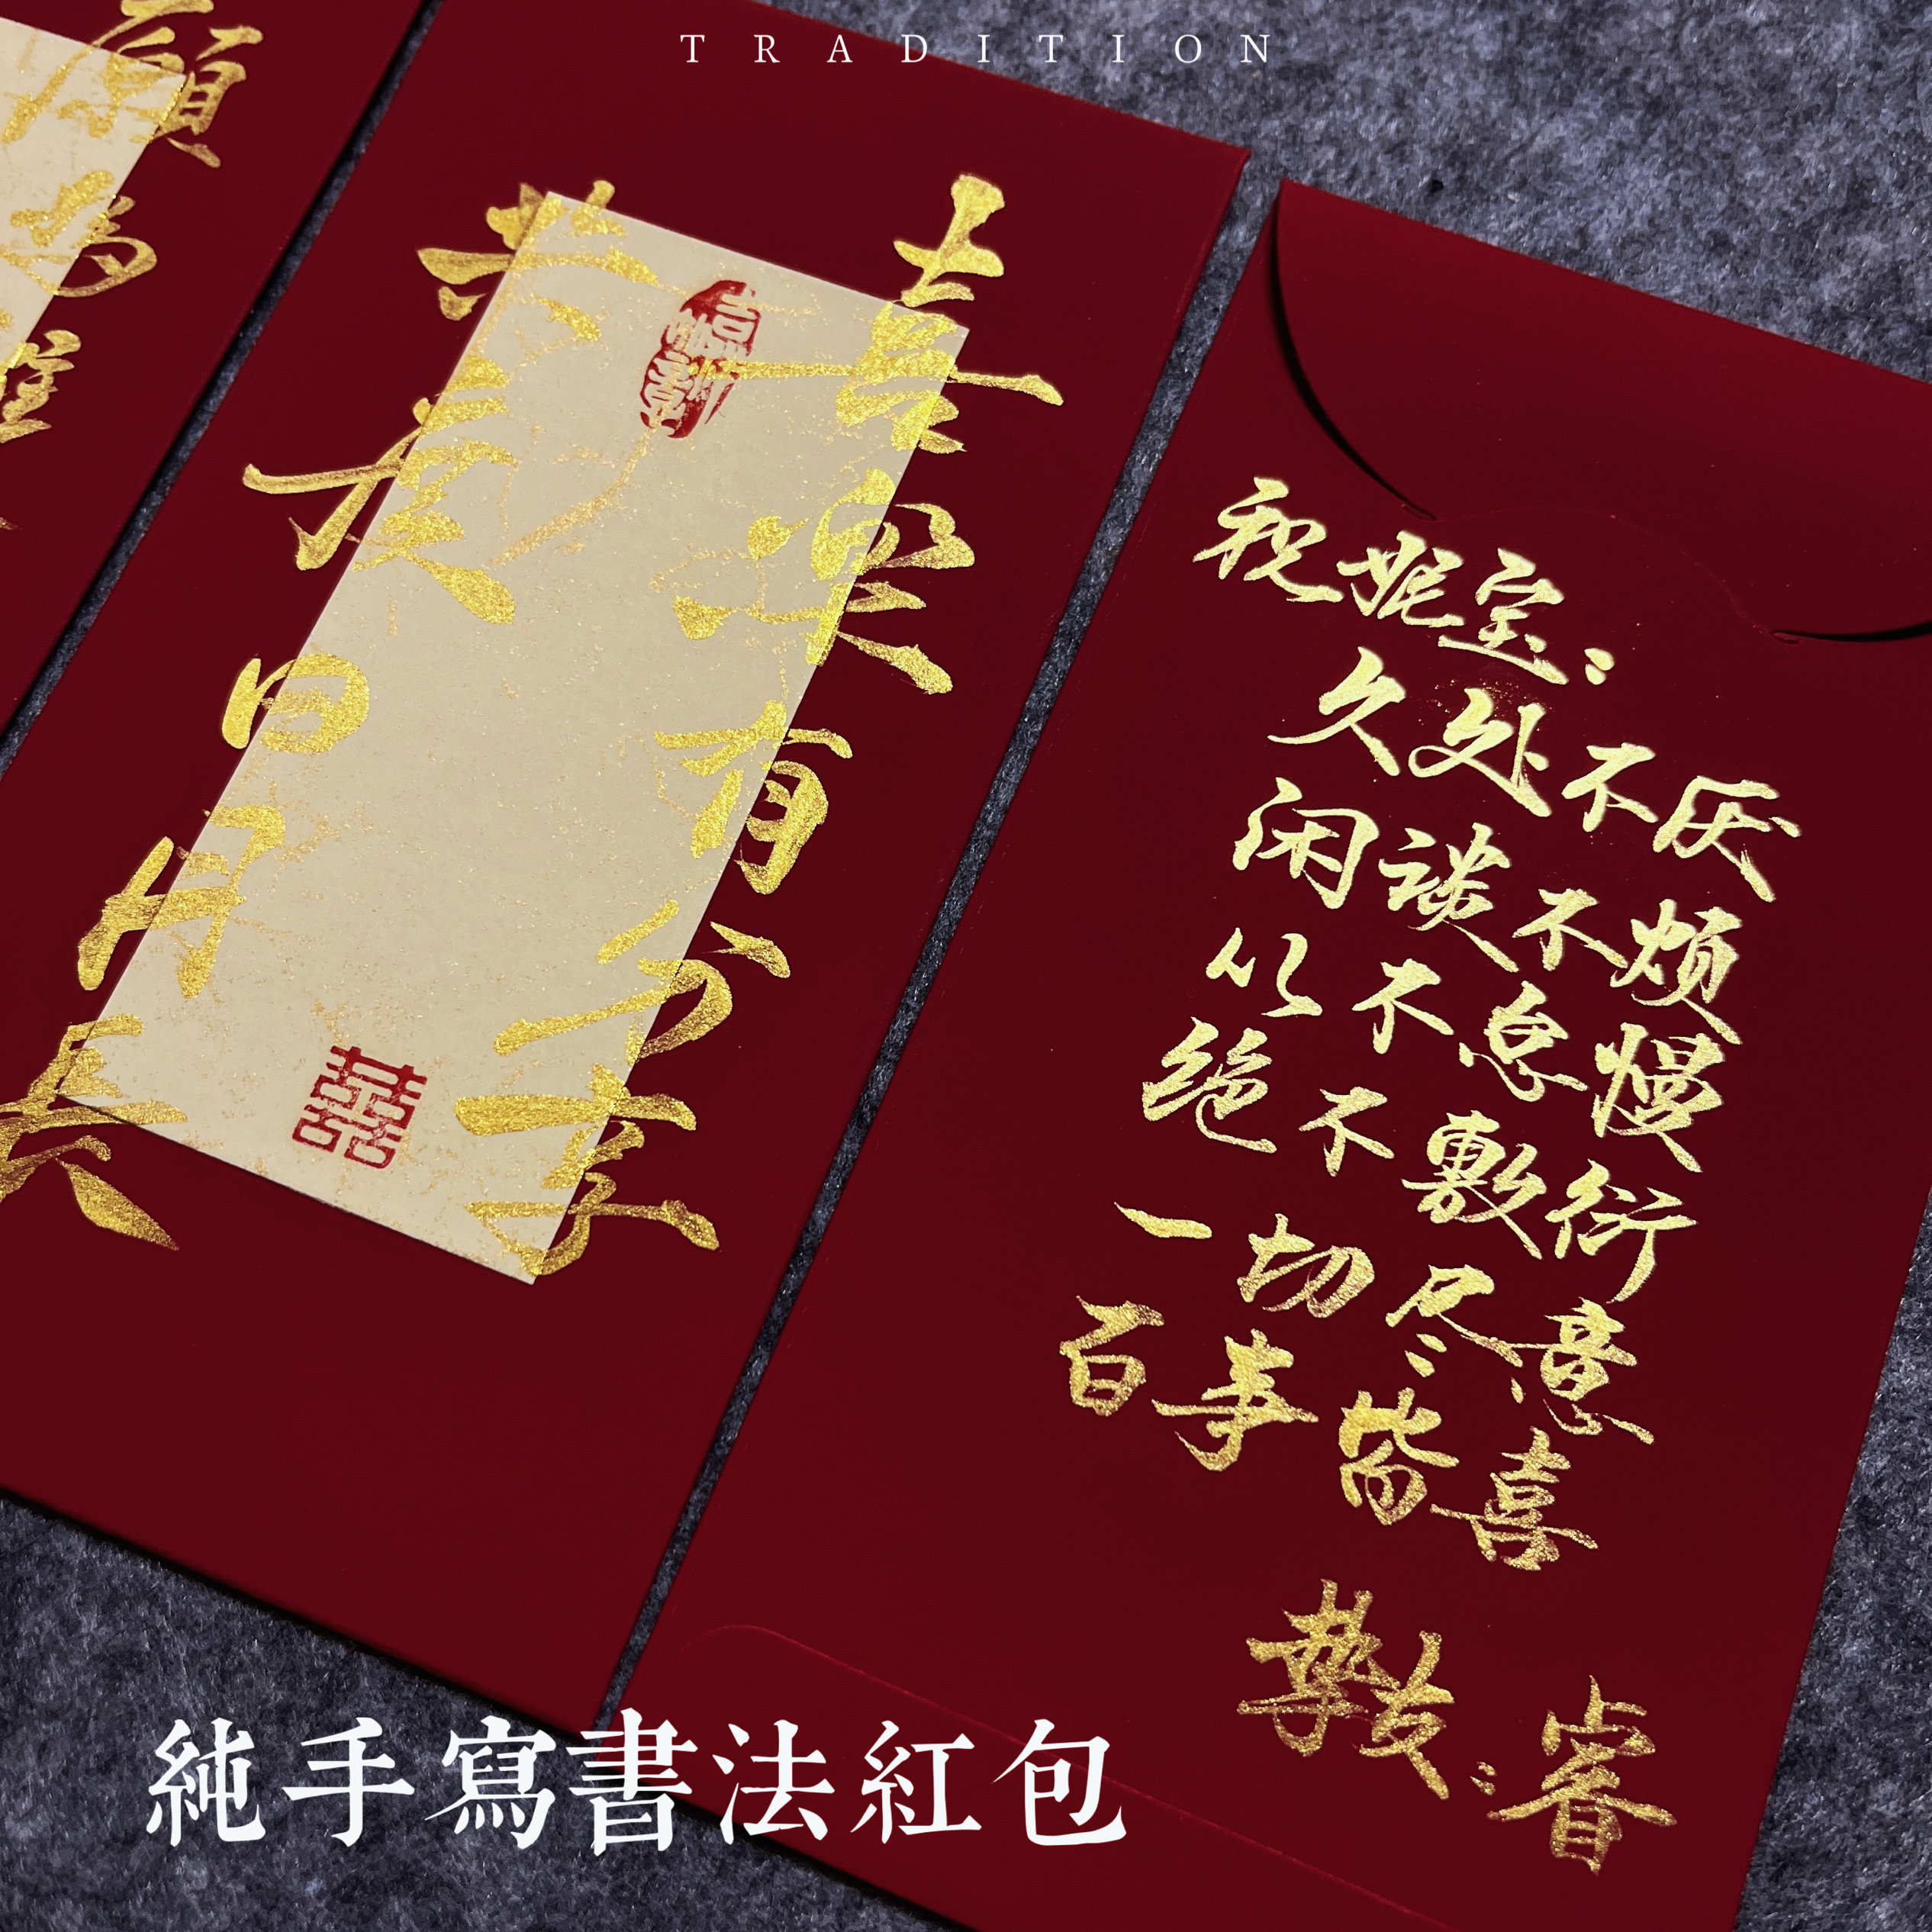 TRADITION
願為雙
喜樂有分享
共度日月長
囍
祝妮宝:
久处不厌
闲谈不烦
从不怠慢
绝不敷衍
一切尽意
百事皆喜
挚友:睿
純手寫書法紅包